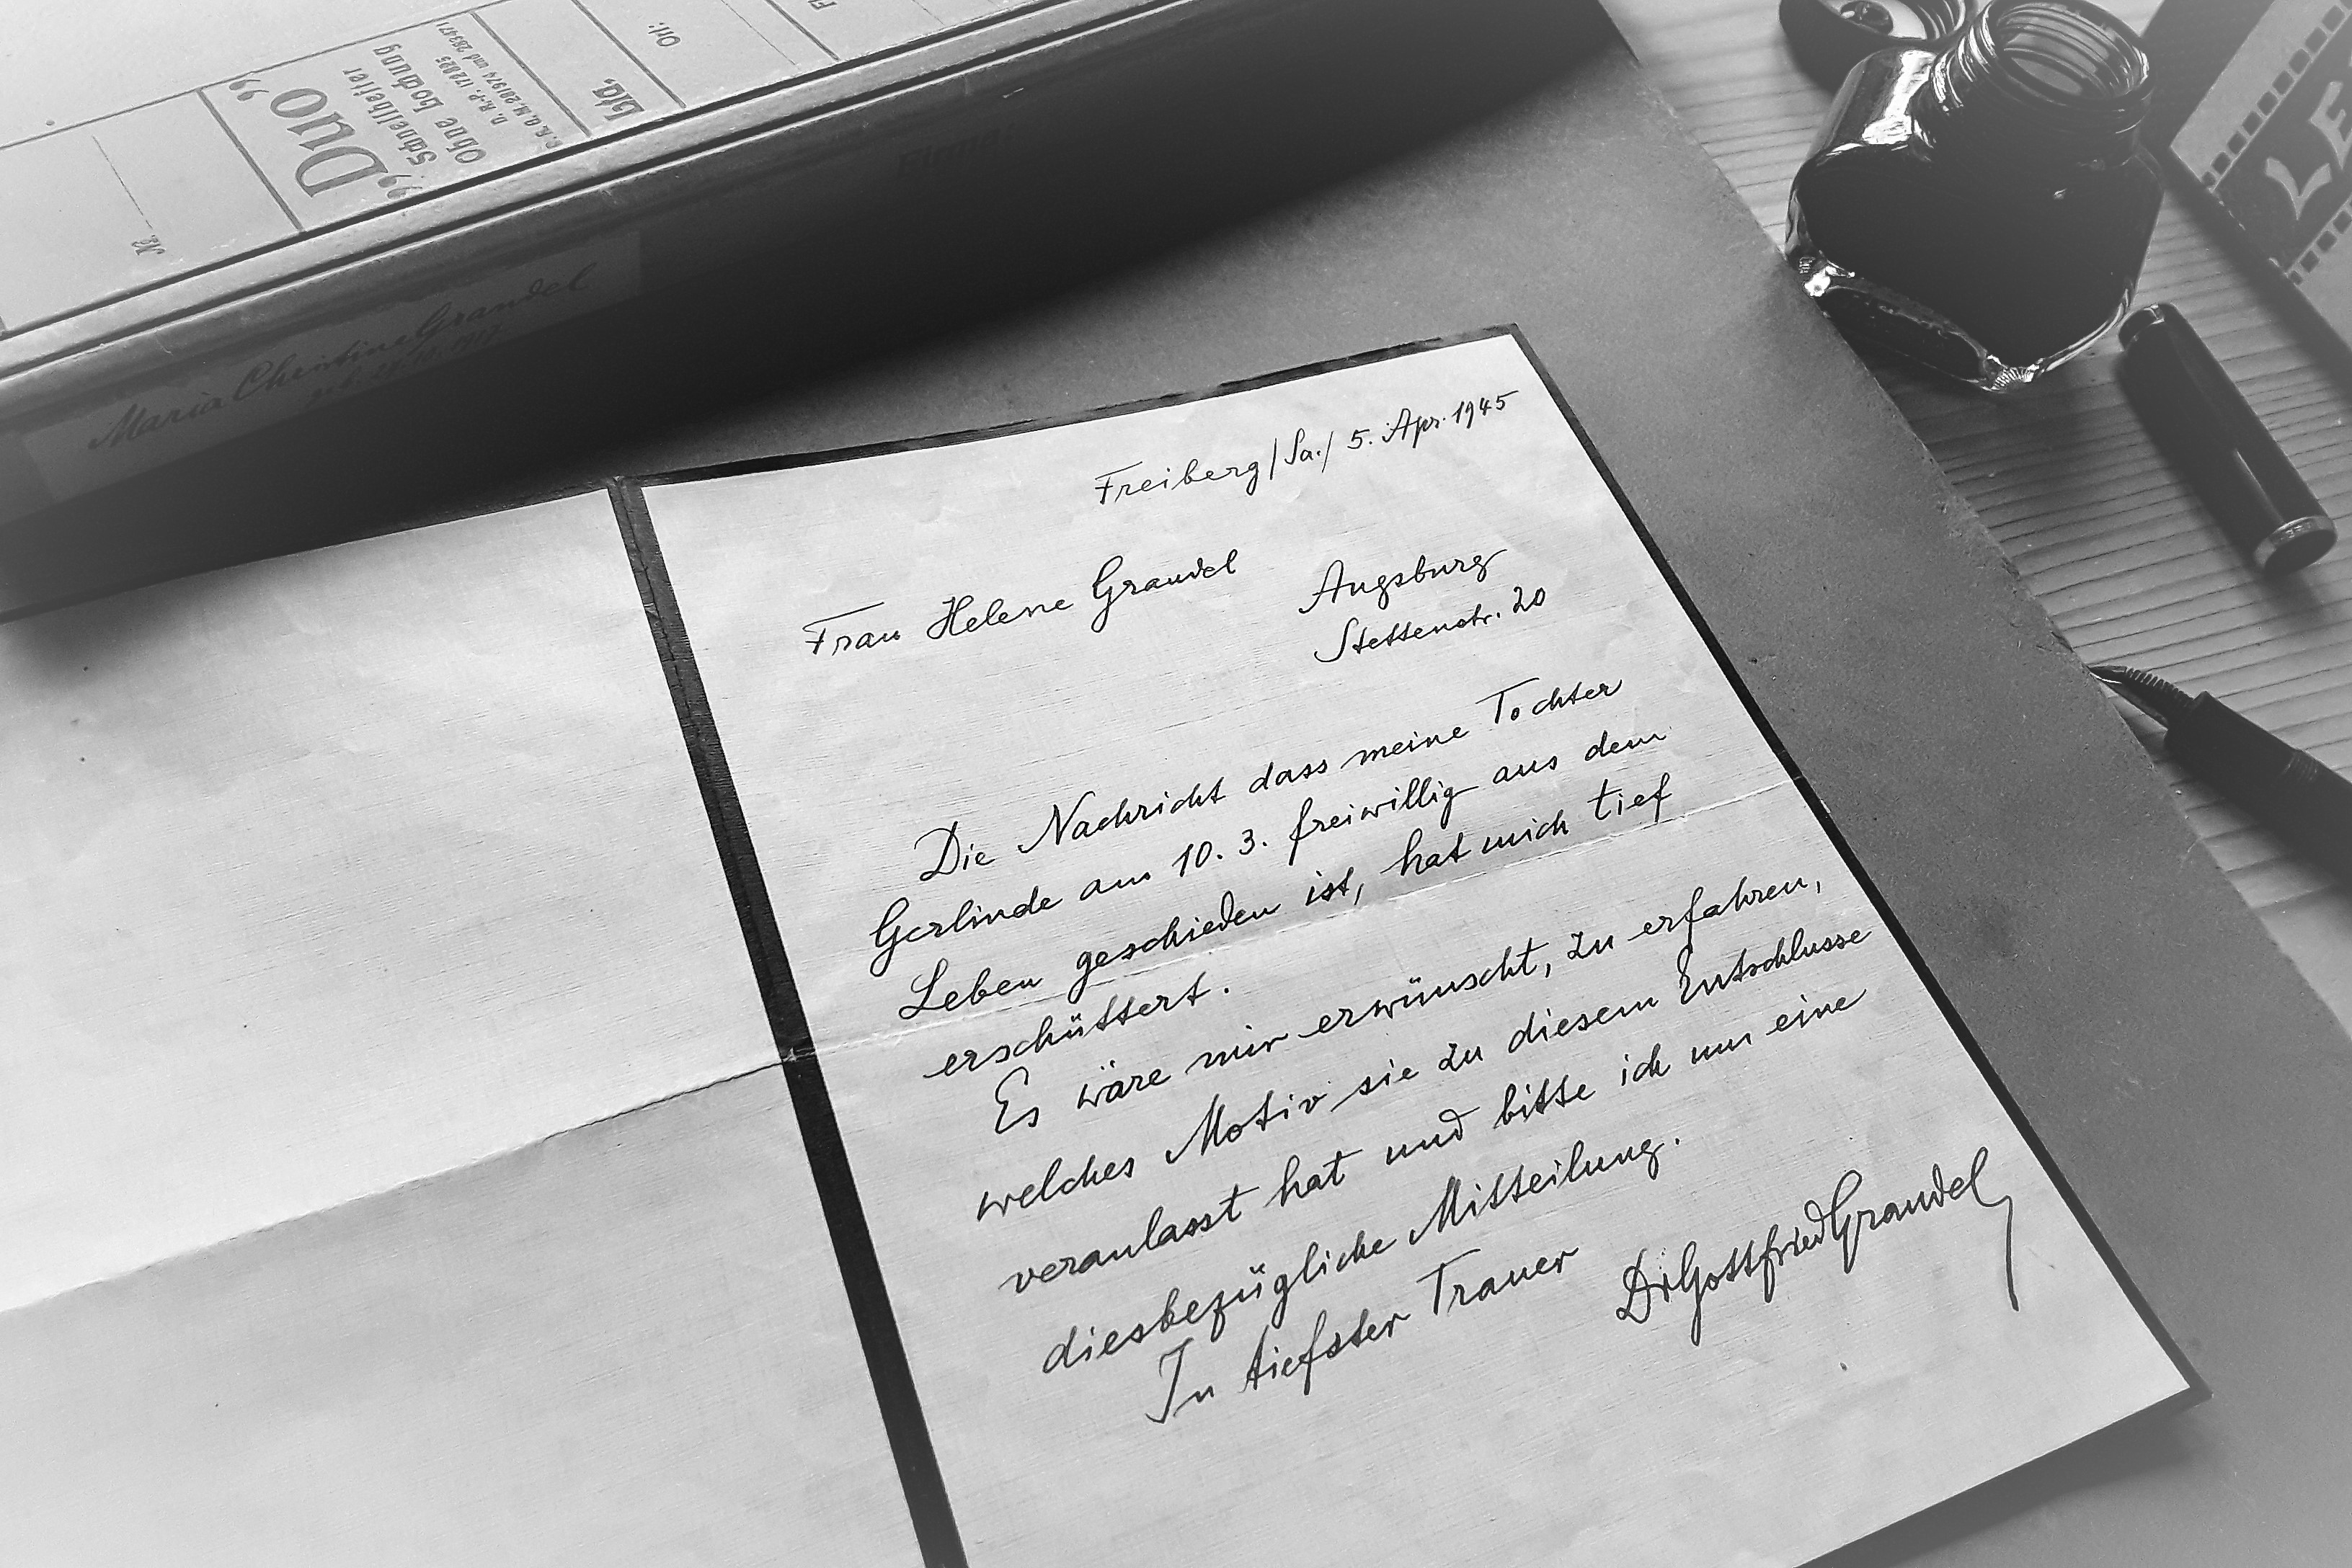 „Duo"
Schnellhefter
Ohne Lochung
D. R. P. 172895
Bla.
Ort:
Nr.
Maria Christine Grandel
Freiberg /Sa./ 5. Apr. 1945
Frau Helene Grandel
Augsburg
Stettenstr. 20
Die Nachricht dass meine Tochter
Gerlinde am 10. 3. freiwillig aus dem
Leben geschieden ist, hat mich tief
erschüttert.
Es wäre mir erwünscht, zu erfahren,
welches Motiv sie zu diesem Entschlusse
veranlasst hat und bitte ich um eine
diesbezügliche Mitteilung.
In tiefster Trauer
Dr Gottfried Grandel